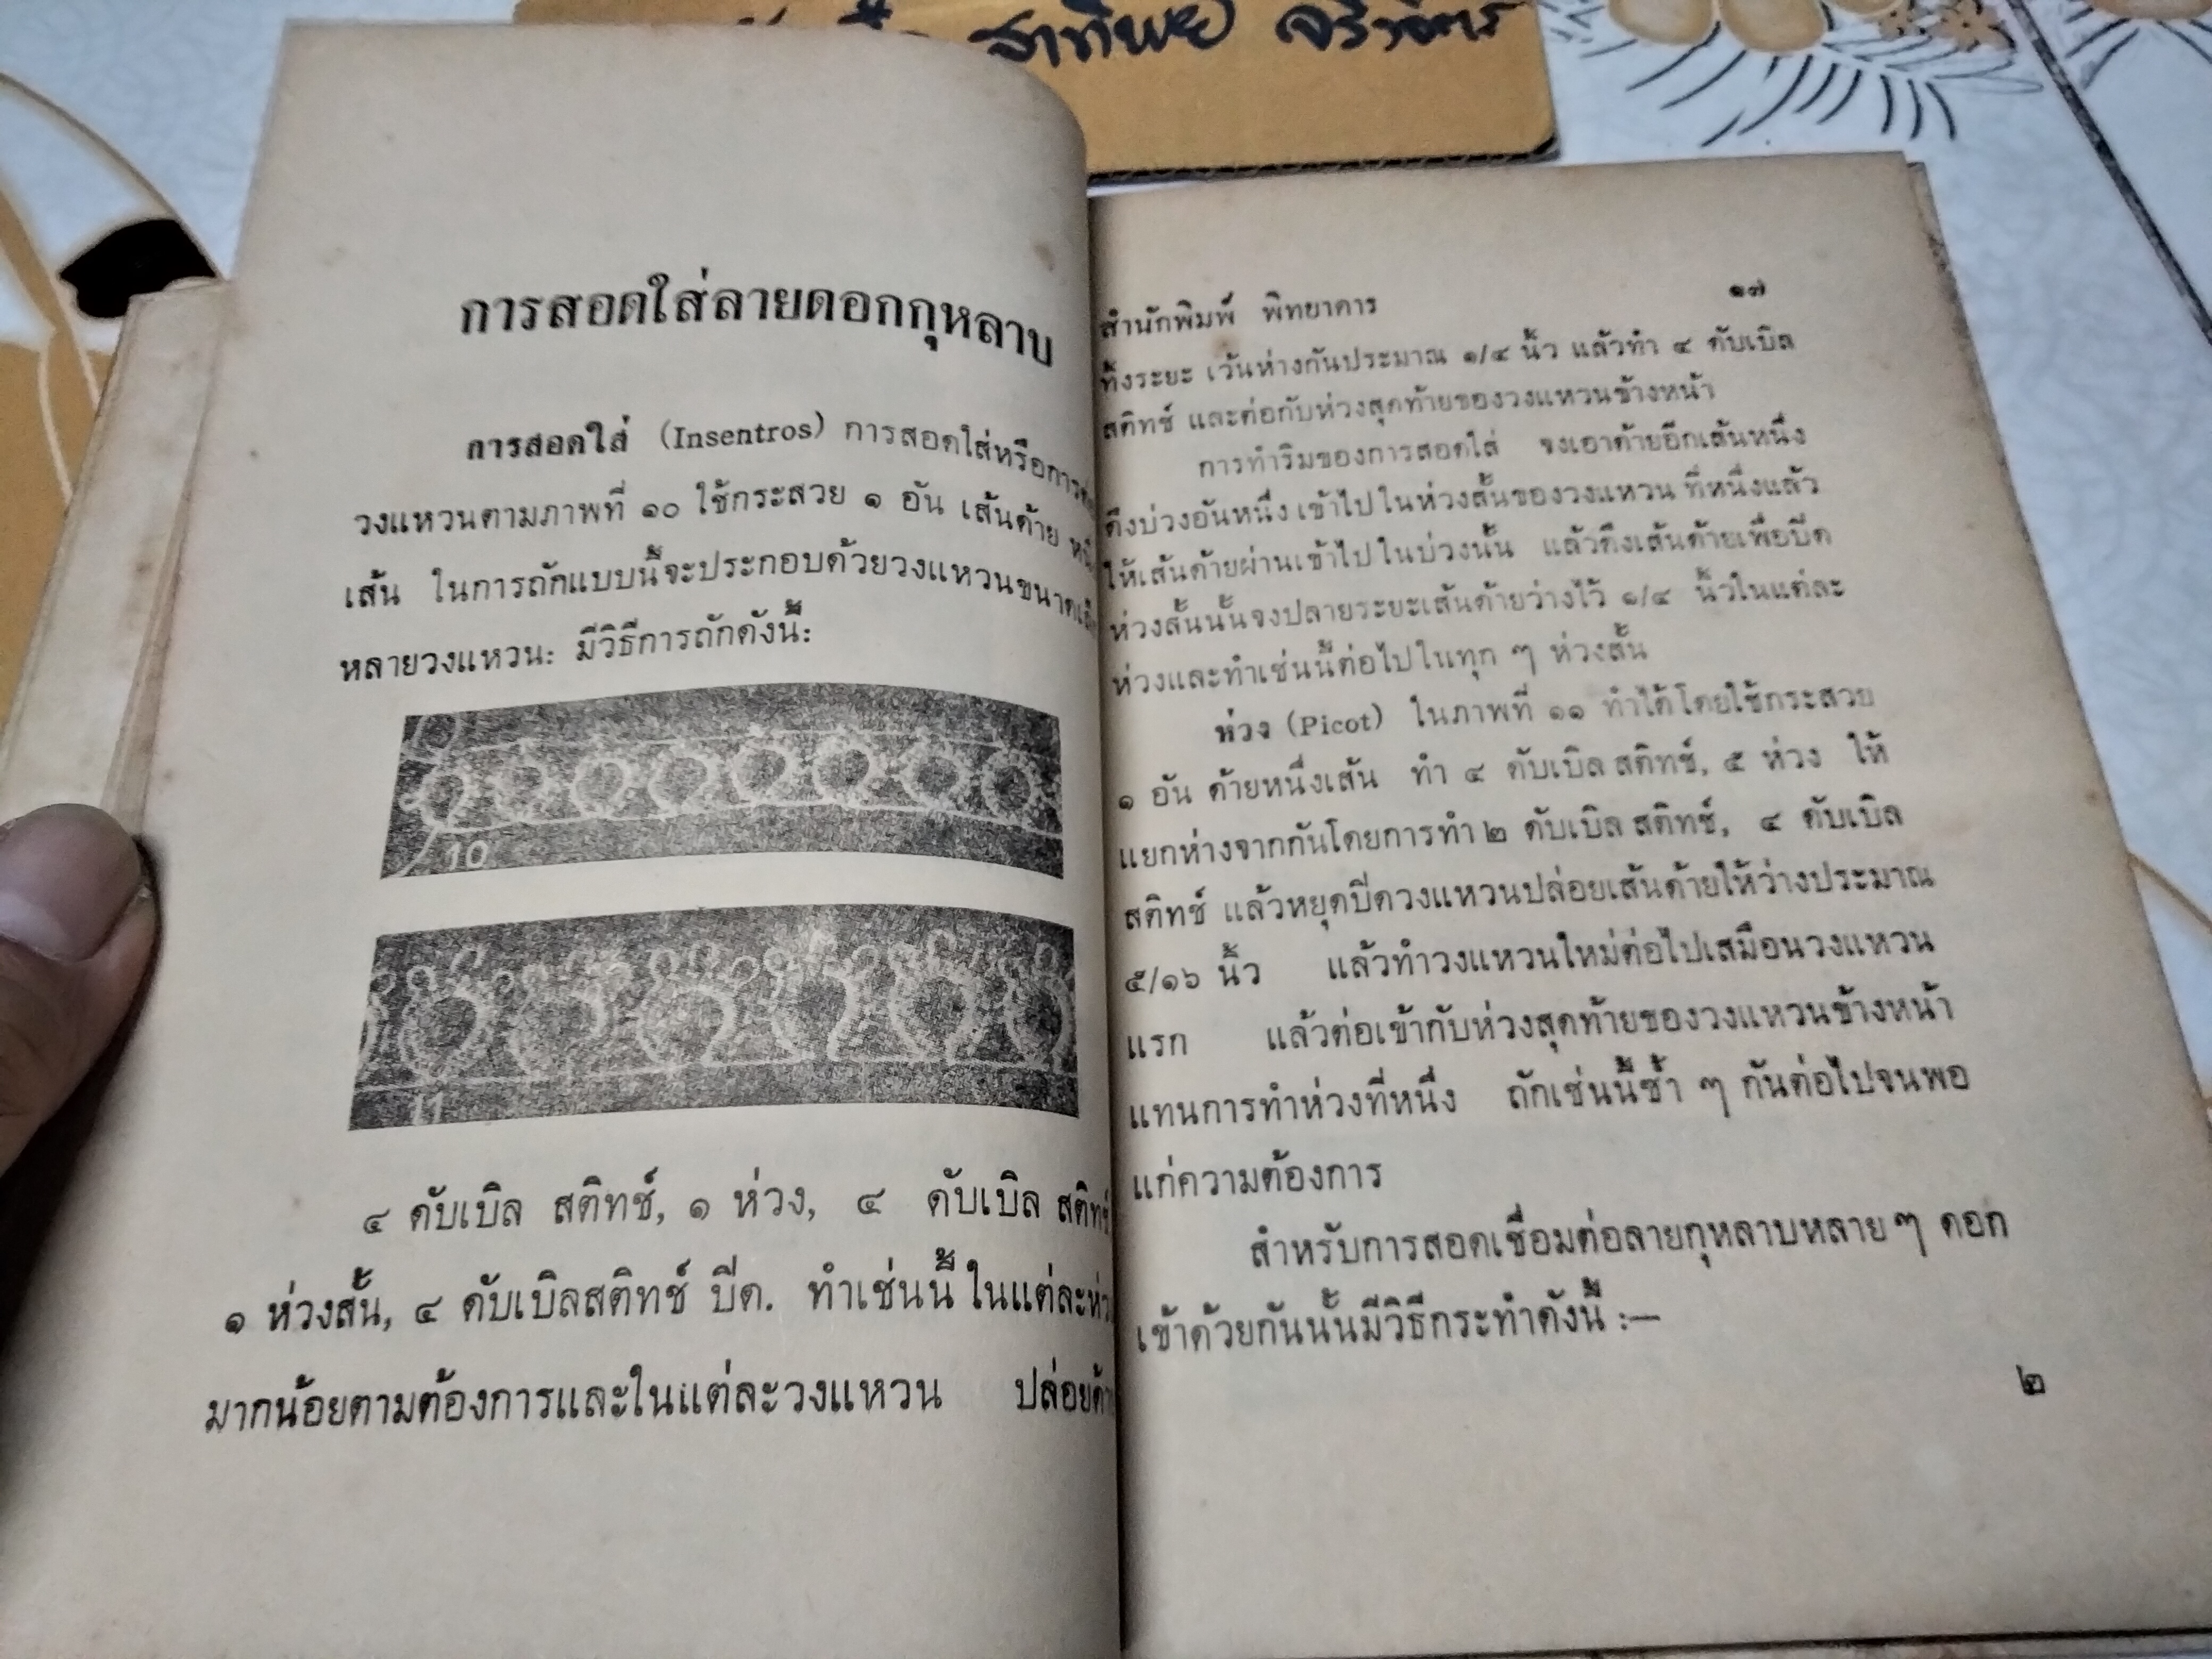 สาทิพย์
การสอดใส่ลายดอกกุหลาบ
การสอดใส่ (Insentros) การสอดใส่หรือการ
วงแหวนตามภาพที่ ๑๐ ใช้กระสวย ๑ อัน เส้นด้าย
เส้น ในการถักแบบนี้จะประกอบด้วยวงแหวนขนาด
หลายวงแหวน: มีวิธีการถักดังนี้:
10
11
๔ ดับเบิล สติทช์, ๑ ห่วง, ๔ ดับเบิล สติทช์
๑ ห่วงสั้น, ๔ ดับเบิลสติทช์ ปีด. ทำเช่นนี้ ในแต่ละ
มากน้อยตามต้องการและในแต่ละวงแหวน ปล่อย
สำนักพิมพ์ พิทยาคาร ๑๗
ทิ้งระยะ เว้นห่างกันประมาณ ๑/๔ นิ้ว แล้วทำ ๔ ดับเบิล
สติทช์ และต่อกับห่วงสุดท้ายของวงแหวนข้างหน้า
การทำริมของการสอดใส่ จงเอาด้ายอีกเส้นหนึ่ง
ดึงบ่วงอันหนึ่ง เข้าไป ในห่วงสั้นของวงแหวน ที่หนึ่งแล้ว
ให้เส้นด้ายผ่านเข้าไป ในบ่วงนั้น แล้วดึงเส้นด้ายเพื่อปีด
ห่วงสั้นนั้นจงปลายระยะเส้นด้ายว่างไว้ ๑/๔ นิ้วในแต่ละ
ห่วงและทำเช่นนี้ต่อไป ในทุก ๆ ห่วงสั้น
ห่วง (Picot) ในภาพที่ ๑๑ ทำได้โดยใช้กระสวย
๑ อัน ด้ายหนึ่งเส้น ทำ ๔ ดับเบิล สติทช์, ๕ ห่วง ให้
แยกห่างจากกันโดยการทำ ๒ ดับเบิล สติทช์, ๔ ดับเบิล
สติทช์ แล้วหยุดปีดวงแหวนปล่อยเส้นด้ายให้ว่างประมาณ
๕/๑๖ นิ้ว แล้วทำวงแหวนใหม่ต่อไปเสมือนวงแหวน
แรก แล้วต่อเข้ากับห่วงสุดท้ายของวงแหวนข้างหน้า
แทนการทำห่วงที่หนึ่ง ถักเช่นนี้ซ้ำ ๆ กันต่อไปจนพอ
แก่ความต้องการ
สำหรับการสอดเชื่อมต่อลายกุหลาบหลาย ๆ ดอก
เข้าด้วยกันนั้นมีวิธีกระทำดังนี้ :—
๒